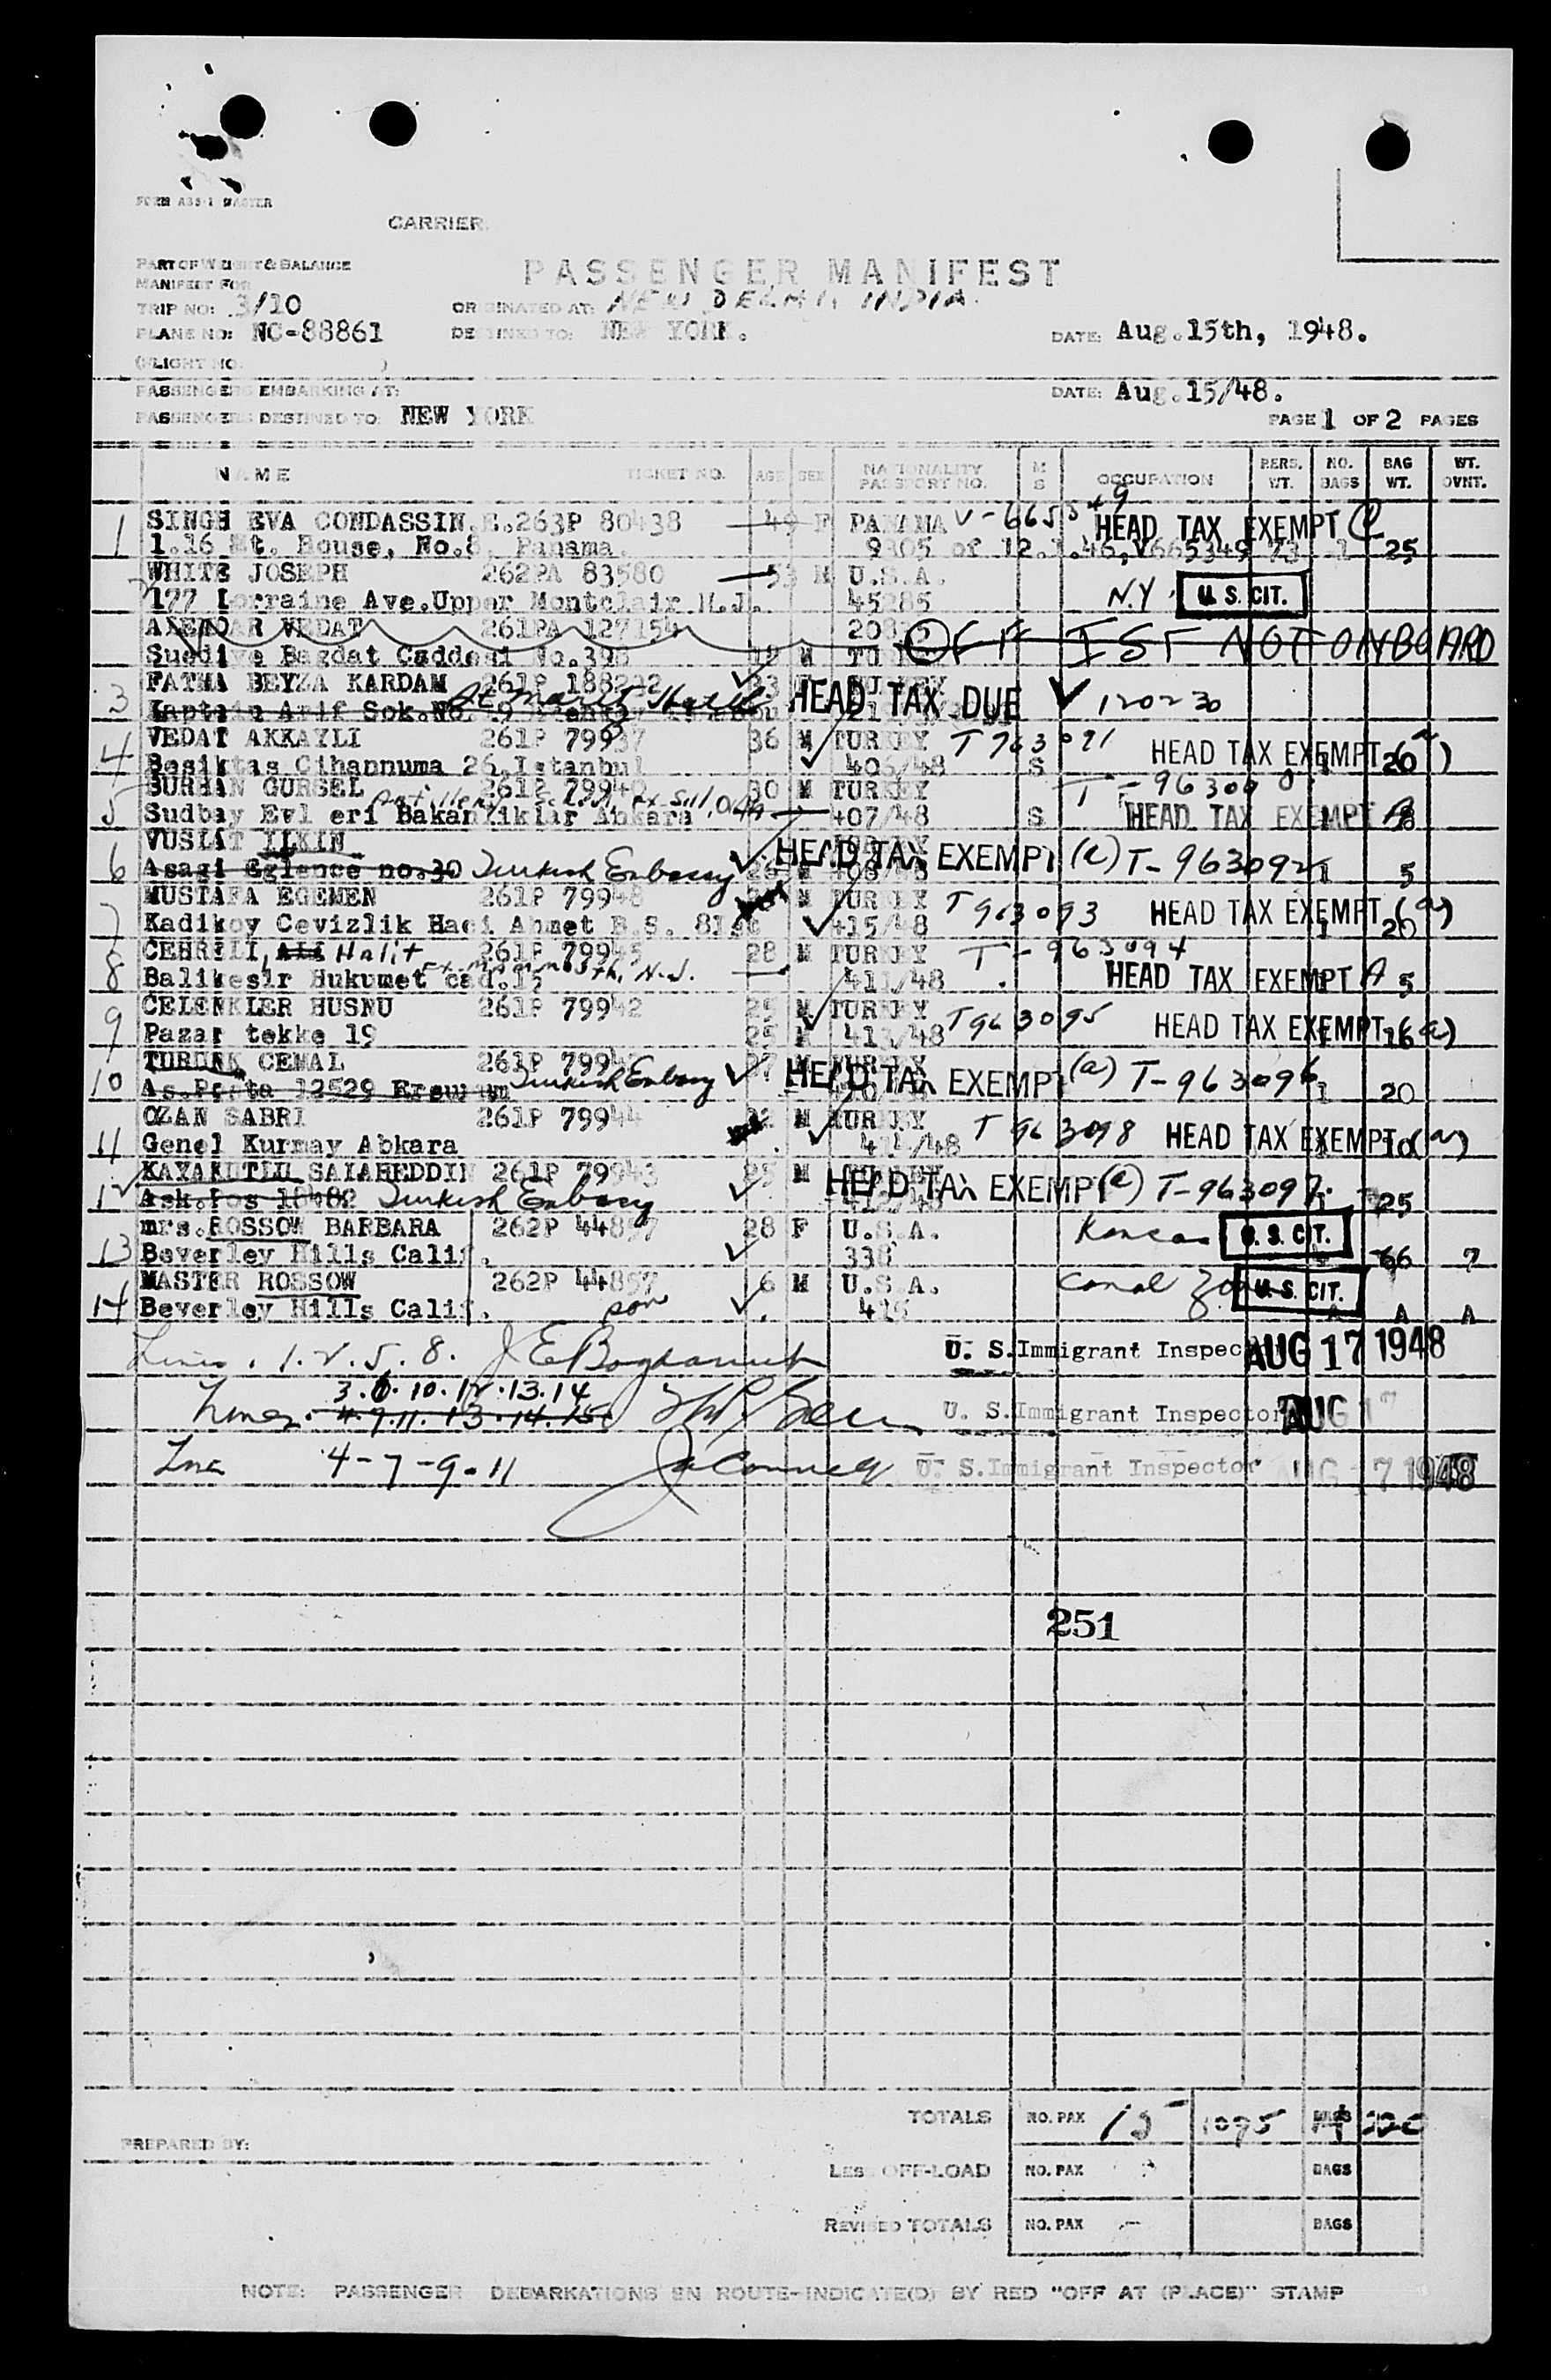 FORM MASTER
CARRIER
PART OF WEIGHT & BALANCE
MANIFEST FOR
PASSENGER MANIFEST
TRIP NO: 3/10 ORIGINATED AT: NEW DELHI, INDIA.
PLANE NO: NC-88861 DESTINED TO: NEW YORK. DATE: Aug.15th, 1948.
(FLIGHT NO. )
PASSENGERS EMBARKING AT: DATE: Aug.15/48.
PASSENGERS DESTINED TO: NEW YORK PAGE 1 OF 2 PAGES
NAME TICKET NO. AGE SEX NATIONALITY PASSPORT NO. M S OCCUPATION PERS. WT. NO. BAGS BAG WT. WT. OVNT.
1 SINGH EVA CONDASSIN.E.263P 80438 49 F PANAMA V-665349 HEAD TAX EXEMPT
1.16 St. House, No.8, Panama. 9305 of 12.1.46,V665349 73 1 25
WHITE JOSEPH 262PA 83580 53 M U.S.A.
177 Lorraine Ave.Upper Montclair N.J. 45285 N.Y. U.S. CIT.
VEDAT 261PA 127154 OFF IST NOT ONBOARD
Suadiye Bagdat Caddesi No.398 M
3 FATMA BEYZA KARDAM 261P 188222 HEAD TAX DUE 120230
Kaptain Arif Sok.No.
4 VEDAT AKKAYLI 261P 79937 36 M TURKEY T963091 HEAD TAX EXEMPT (a)
Besiktas Cihannuma 26.Istanbul 406/48 S 20
5 BURHAN GURSEL 261P 79940 30 M TURKEY
Sudbay Evl eri Bakanliklar Ankara 407/48 S HEAD TAX EXEMPT A
6 VUSLAT ILKIN HEAD TAX EXEMPT (a) T-963092
Asagi Eglence no.30 Turkish Embassy 5
7 MUSTAFA EGEMEN 261P 79948 M TURKEY T963093 HEAD TAX EXEMPT (a)
Kadikoy Cevizlik Haci Ahmet B.S. 81 415/48 20
8 CEBRELI, Halit 261P 79945 28 M TURKEY T-963094
Balikesir Hukumet cad.15 Ft. Monmouth, N.J. 411/48 HEAD TAX EXEMPT A 5
9 CELENKLER HUSNU 261P 79942 25 M TURKEY T963095 HEAD TAX EXEMPT (a)
Pazar tekke 19 25 M 413/48 16
10 CEMAL 261P HEAD TAX EXEMPT (a) T-963096
As.Posta 12529 Erzurum Turkish Embassy 20
11 OZAN SABRI 261P 79944 M TURKEY T963098 HEAD TAX EXEMPT (a)
Genel Kurmay Abkara 414/48 10
12 KAYAKUTLU SALAHEDDIN 261P 79943 25 M HEAD TAX EXEMPT (a) T-963097
Ask.Pos 18482 Turkish Embassy 25
13 mrs.ROSSOW BARBARA 262P 44857 28 F U.S.A. Kansas U.S. CIT.
Beverley Hills Calif. 338 66 7
14 MASTER ROSSOW 262P 44857 6 M U.S.A. Canal Zone U.S. CIT.
Beverley Hills Calif. son A A A
Lines. 1.2.5.8. U. S.Immigrant Inspector AUG 17 1948
3.6.10.12.13.14
Lines. 4.9.11.13.14.15 U. S.Immigrant Inspector AUG 17
Line 4-7-9-11 U. S.Immigrant Inspector AUG 17 1948
251
TOTALS NO. PAX 15 1095 BAGS
PREPARED BY:
LESS OFF-LOAD NO. PAX BAGS
REVISED TOTALS NO. PAX - BAGS
NOTE: PASSENGER DEBARKATIONS EN ROUTE-INDICATE(D) BY RED "OFF AT (PLACE)" STAMP